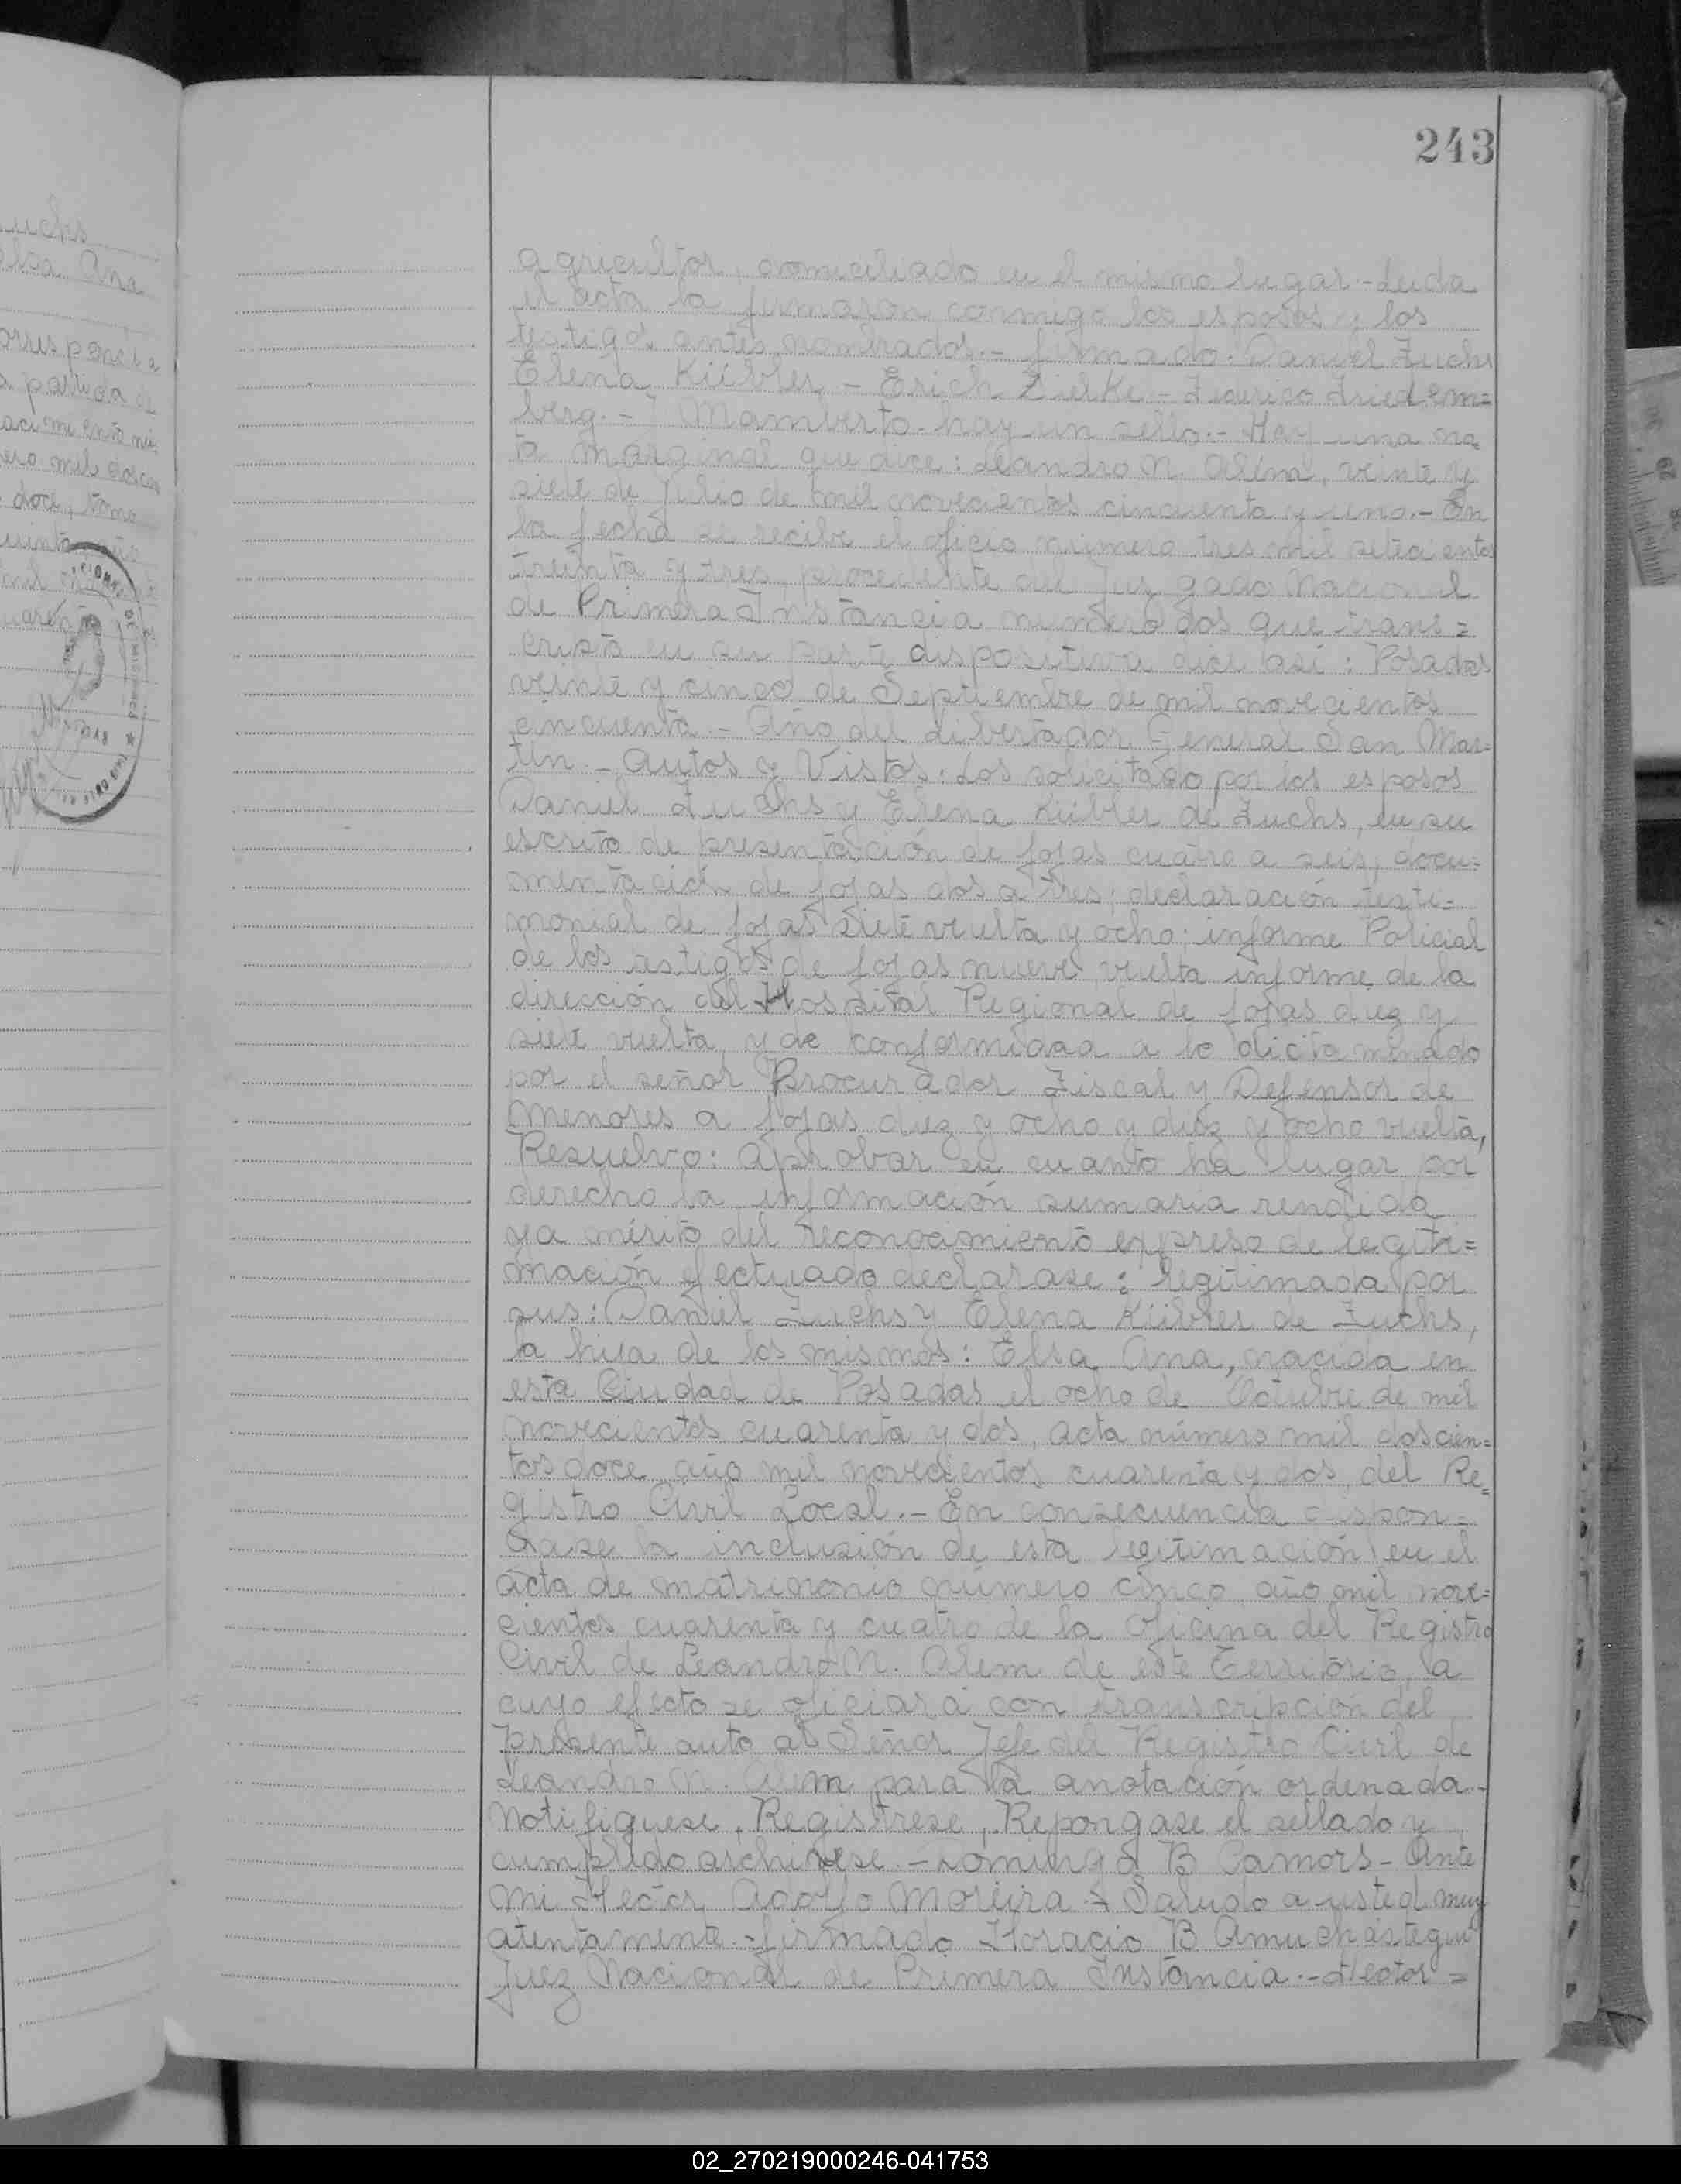 243
uchs
Elsa Ana
orresponde a
a partida de
naci miento nú
ero mil doscien
doce, tomo
agricultor, domiciliado en el mismo lugar.- Leida
el acta la firmaron conmigo los esposos y los
testigos antes nombrados.- firmado. Daniel Fuchs
Elena Kübler - Erich Zielke - Federico Friedem=
berg.- J Mamberto - hay un sello.- Hay una no=
ta marginal que dice: Leandro N. Além, veinte y
siete de Julio de mil novecientos cincuenta y uno.- En
la fecha se recibe el oficio número tres mil setecientos
treinta y tres, procedente del Juz gado Nacional
de Primera Instancia número dos que trans=
cripto en su parte dispositiva dice así: Posadas
veinte y cinco de Septiembre de mil novecientos
cincuenta.- Año del Libertador General San Mar=
tín.- Autos y Vistos: Los solicitado por los esposos
Daniel Fuchs y Elena Kübler de Fuchs, en su
escrito de presentación de fojas cuatro a seis, docu=
mentación de fojas dos a tres; declaración testi=
monial de fojas siete vuelta y ocho; informe Policial
de los testigos de fojas nueve vuelta informe de la
dirección del Hospital Regional de fojas diez y
siete vuelta, y de conformidad a lo dictaminado
por el señor Procurador Fiscal y Defensor de
Menores a fojas diez y ocho y diez y ocho vuelta,
Resuelvo: Aprobar en cuanto ha lugar por
derecho la información sumaria rendida
ya mérito del reconocimiento expreso de legiti=
mación efectuado declarase: legitimada por
sus: Daniel Fuchs y Elena Kübler de Fuchs,
la hija de los mismos: Elsa Ana, nacida en
esta Ciudad de Posadas el ocho de Octubre de mil
novecientos cuarenta y dos, acta número mil doscien=
tos doce año mil novecientos cuarenta y dos, del Re=
gistro Civil Local.- En consecuencia dispon=
gase la inclusión de esta legitimación en el
acta de matrimonio número cinco año mil nove=
cientos cuarenta y cuatro de la Oficina del Registro
Civil de Leandro N. Alem de este Territorio, a
cuyo efecto se oficiará con transcripción del
presente auto al Señor Jefe del Registro Civil de
Leandro N. Alem para la anotación ordenada.-
Notifiquese, Registrese, Repongase el sellado y
cumplido archivese.- Domingo B Camors - Ante
mi Hector Adolfo Moreira - Saludo a usted muy
atentamente.- firmado Horacio B Amuchástegui
Juez Nacional de Primera Instancia.- Hector =
02_270219000246-041753